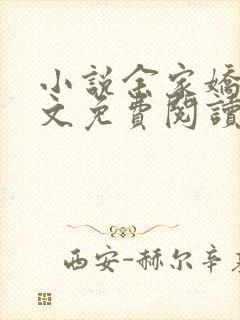 小説全家嬌
文免費閱讀
西安-赫尔辛基